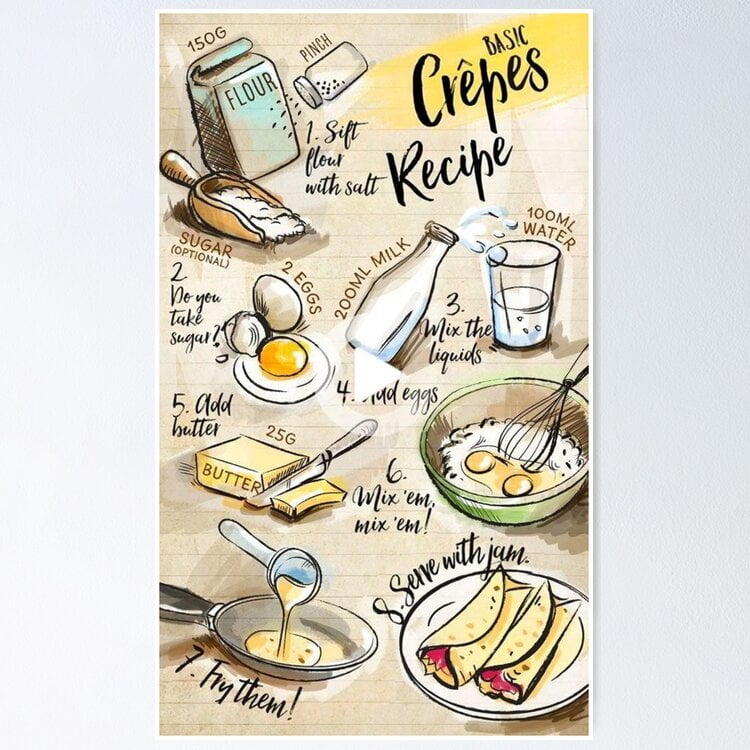 BASIC
Crêpes
Recipe
150G
FLOUR
PINCH
1. Sift
flour
with salt
SUGAR
(OPTIONAL)
2
Do you
take
sugar?
2 EGGS
200ML MILK
100ML
WATER
3.
Mix the
liquids
4. Add eggs
5. Add
butter
25G
BUTTER
6.
Mix 'em,
mix 'em!
7. Fry them!
8. Serve with jam.